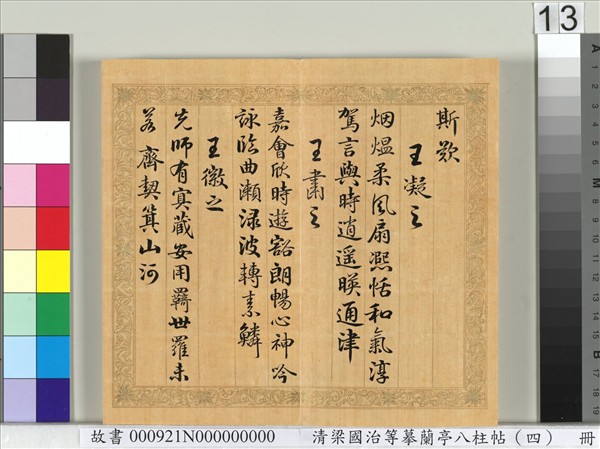 斯歟
王凝之
烟熅柔風扇熙恬和氣淳
駕言與時遊逍遥暎通津
王肅之
嘉會欣時遊豁朗暢心神吟
詠臨曲瀬渌波轉素鱗
王徽之
先師有冥藏安用羈世羅未
若齊契箕山河
13
故書 000921N000000000 清梁國治等摹蘭亭八柱帖（四） 冊